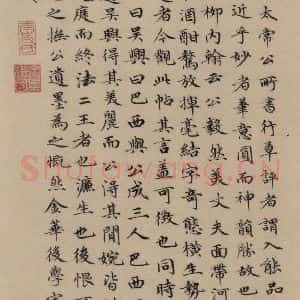 太常公所書行草評者謂入能品
近乎妙者筆意圓而神韻勝故也
柳內翰云公毅然美丈夫面帶河
酒酣驁放揮毫結字奇態橫生勢
者今觀此帖其言盖可徵也同時
曰吳興曰巴西與公成三人巴西
吳興得其美麗而得其閒婉皆
庭而終法二王者也濂生也後恨
之撫公遺墨為之慨然金華後學宋
Shufawang.CN